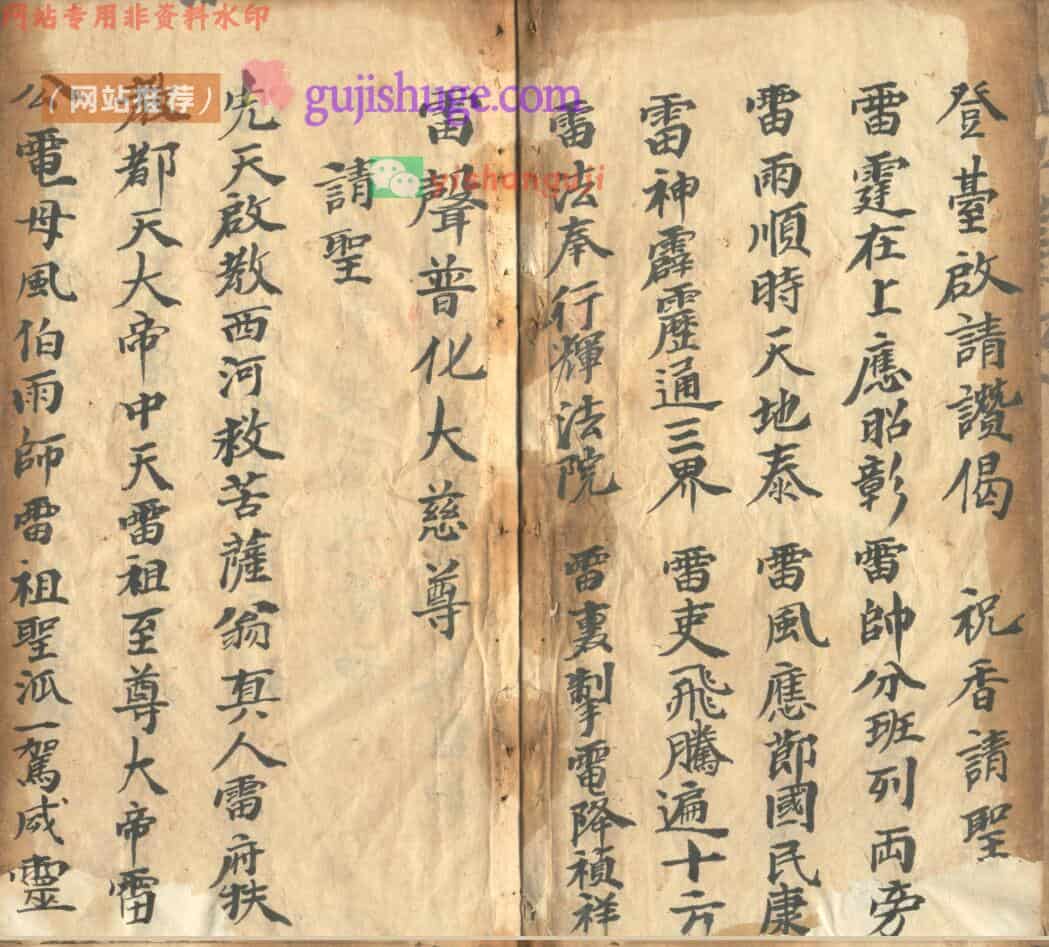 网站专用非资料水印
（网站推荐）
gujishuge.com
yishanguji
登臺啟請讚偈　祝香請聖
雷霆在上應昭彰　雷帥分班列両旁
雷雨順時天地泰　雷風應節國民康
雷神霹靂通三界　雷吏飛騰遍十方
雷法奉行渾法院　雷裏掣電降禎祥
雷聲普化大慈尊
請聖
先天啟教西河救苦薩翁真人雷府
都天大帝中天雷祖至尊大帝雷
公電母風伯雨師雷祖聖派一駕威靈